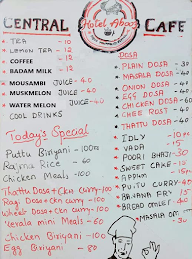 CENTRAL Hotel Abaaz CAFE
TEA - 10
LEMON TEA - 12
COFFEE - 12
BADAM MILK - 12
MOUSAMBI JUICE - 40
MUSKMELON JUICE - 40
WATER MELON JUICE - 40
COOL DRINKS
Today's Special
Puttu Biriyani - 100
Rajma Rice - 60
Chicken Meals - 100
Thattu Dosa + Ckn curry - 100
Ragi Dosa + Ckn curry - 100
Wheat Dosa + Ckn curry - 100
Kerala mini Meals - 60
Chicken Biriyani - 100
Egg Biriyani - 80
DOSA
PLAIN DOSA - 30
MASALA DOSA - 40
ONION DOSA - 40
EGG DOSA - 40
CHICKEN DOSA - 60
GHEE ROST - 40
THATTU DOSA - 40
IDLY - 10
VADA - 15
POORI BHAJI - 30
SWEET CAKE
APPAM - 15
PUTTU CURRY - 40
BANANA FRY - 15
BREAD OMLET - 40
MASALA OM - 30